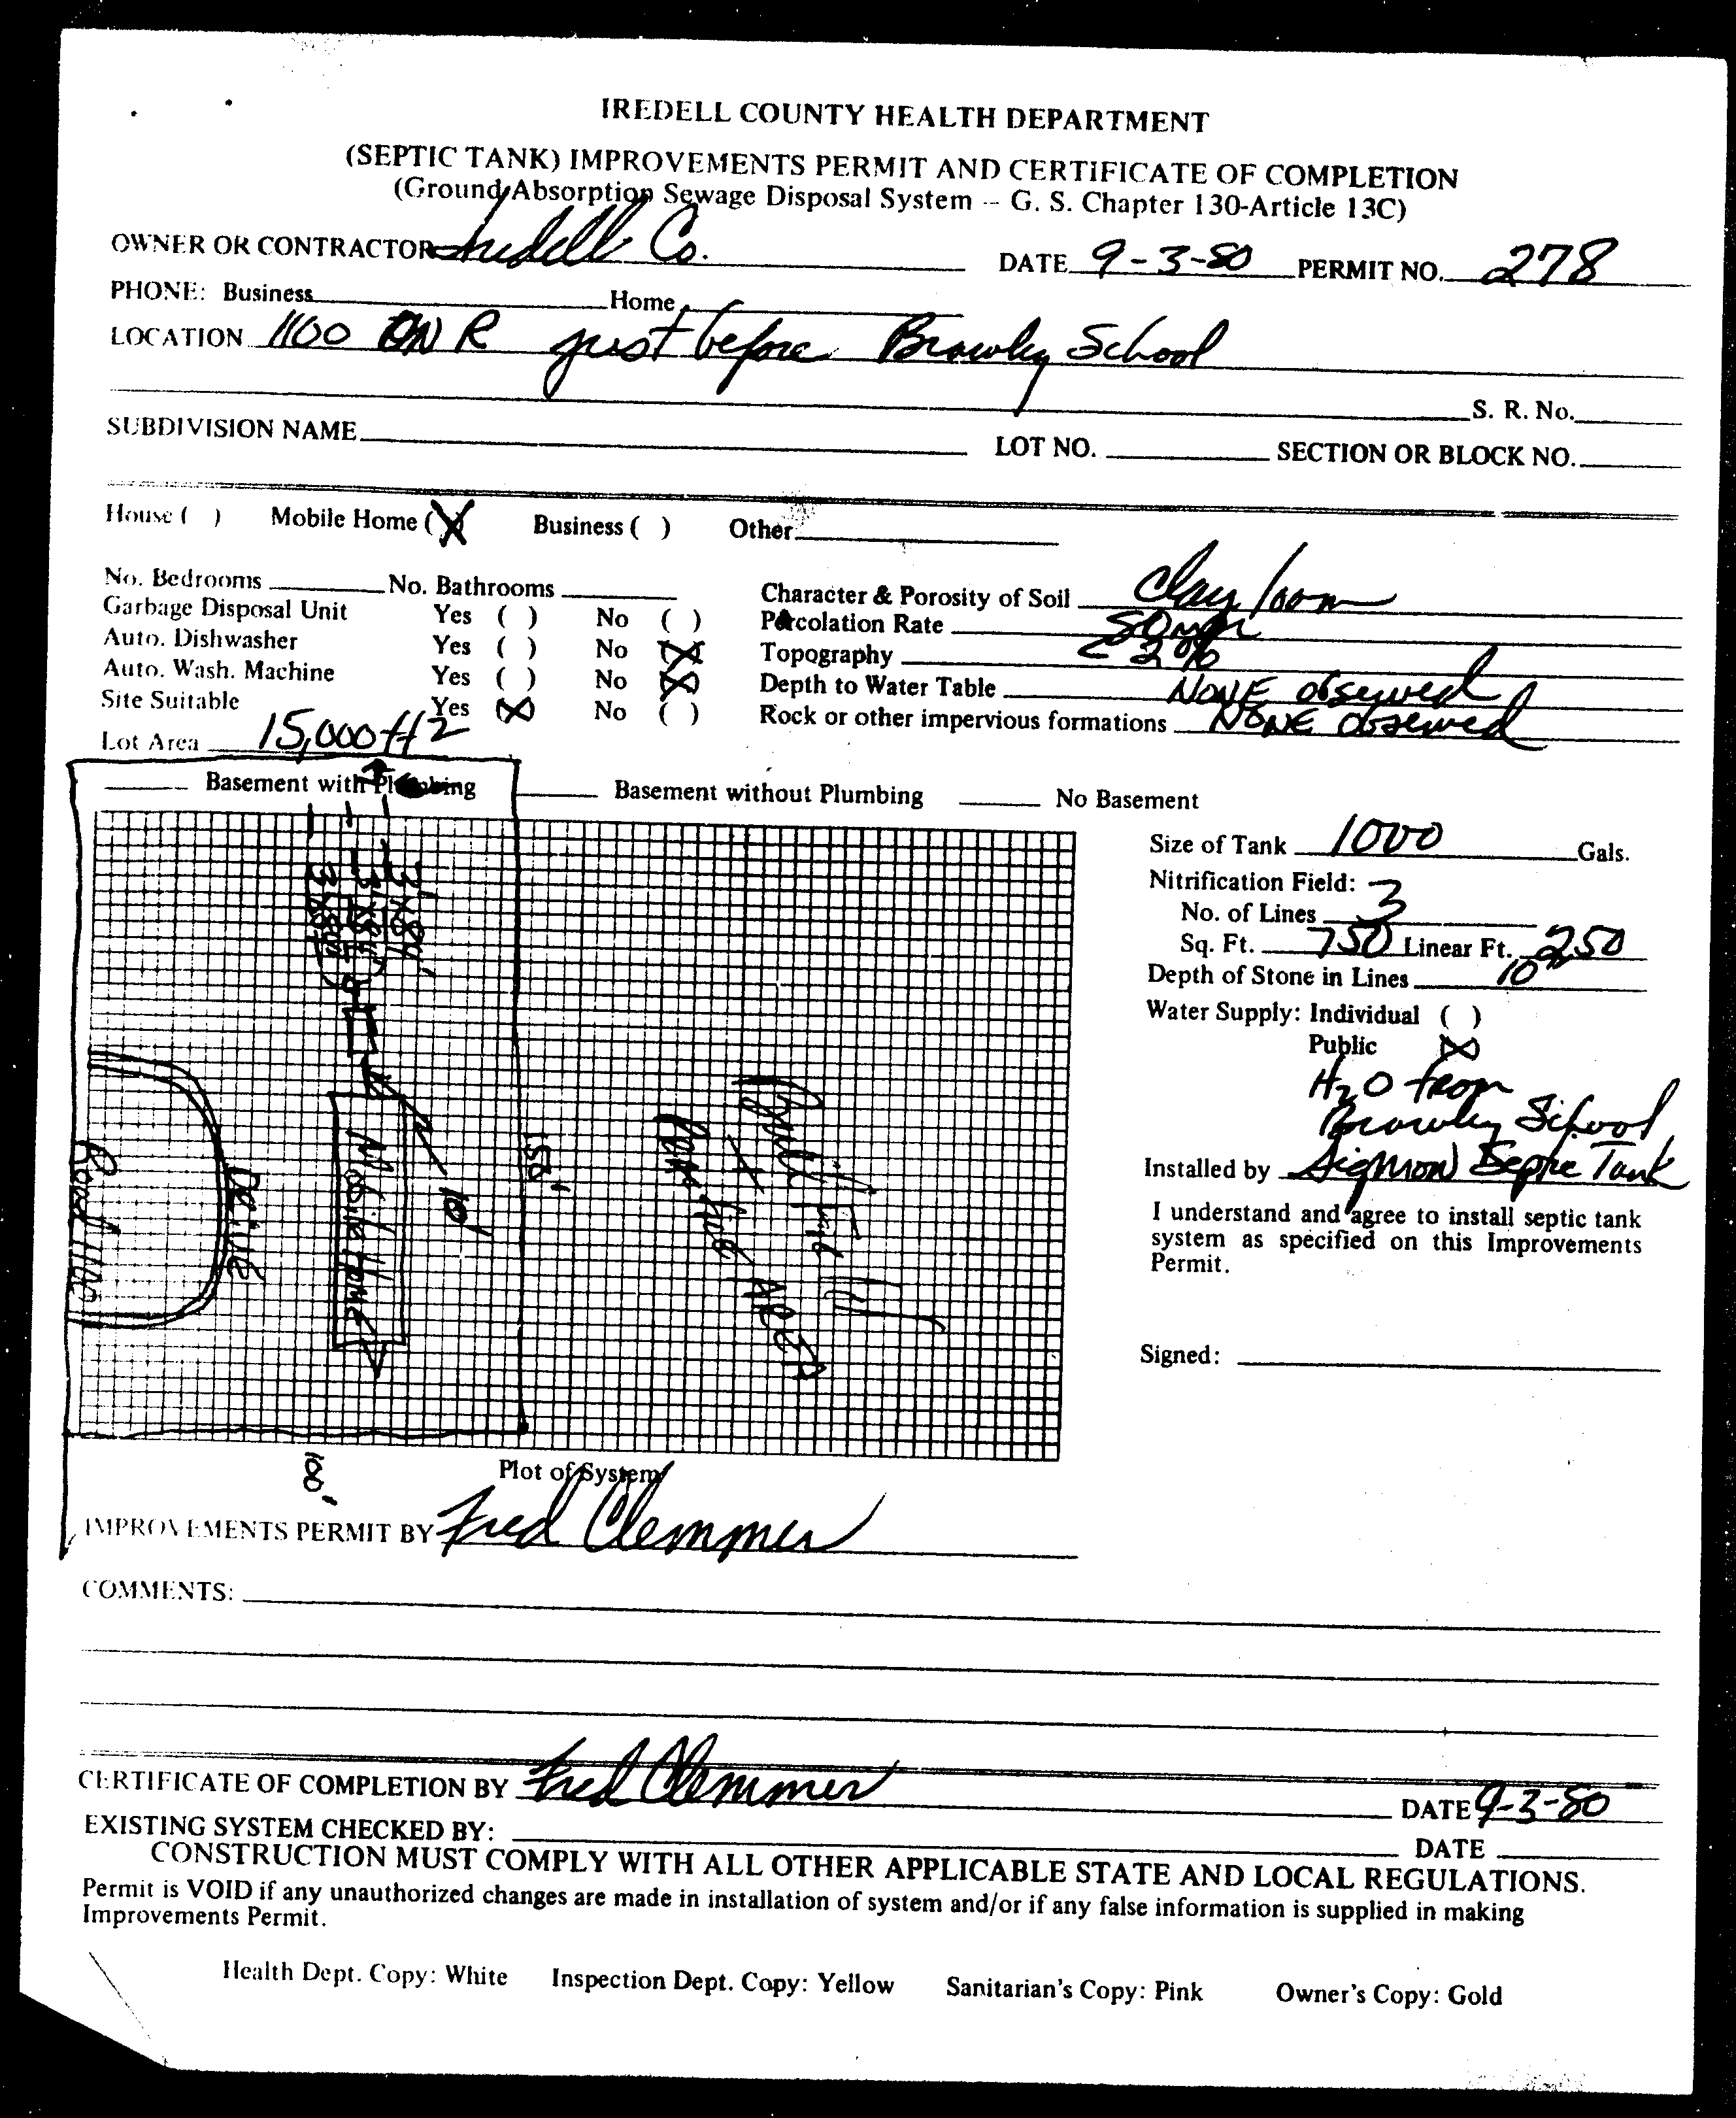 IREDELL COUNTY HEALTH DEPARTMENT
(SEPTIC TANK) IMPROVEMENTS PERMIT AND CERTIFICATE OF COMPLETION
(Ground Absorption Sewage Disposal System -- G. S. Chapter 130-Article 13C)
OWNER OR CONTRACTOR Iredell Co. DATE 9-3-80 PERMIT NO. 278
PHONE: Business Home
LOCATION 1100 ON R just before Brawley School
S. R. No.
SUBDIVISION NAME LOT NO. SECTION OR BLOCK NO.
House ( ) Mobile Home (X) Business ( ) Other
No. Bedrooms No. Bathrooms Character & Porosity of Soil Clay loom
Garbage Disposal Unit Yes ( ) No ( ) Percolation Rate 50
Auto. Dishwasher Yes ( ) No (X) Topography < 2%
Auto. Wash. Machine Yes ( ) No (X) Depth to Water Table NONE observed
Site Suitable Yes (X) No ( ) Rock or other impervious formations NONE observed
Lot Area 15,000 ft2
Basement with Plumbing Basement without Plumbing No Basement
Size of Tank 1000 Gals.
Nitrification Field:
No. of Lines 3
Sq. Ft. 750 Linear Ft. 250
Depth of Stone in Lines 10"
Water Supply: Individual ( )
Public (X)
H2O from
Brawley School
Installed by Sigmon Septic Tank
I understand and agree to install septic tank
system as specified on this Improvements
Permit.
Signed:
3'x84'
Mobile Home
10'
150'
Drive
Road 1100
100'
Plot of System
IMPROVEMENTS PERMIT BY Fred Clemmer
COMMENTS:
CERTIFICATE OF COMPLETION BY Fred Clemmer DATE 9-3-80
EXISTING SYSTEM CHECKED BY: DATE
CONSTRUCTION MUST COMPLY WITH ALL OTHER APPLICABLE STATE AND LOCAL REGULATIONS.
Permit is VOID if any unauthorized changes are made in installation of system and/or if any false information is supplied in making
Improvements Permit.
Health Dept. Copy: White Inspection Dept. Copy: Yellow Sanitarian's Copy: Pink Owner's Copy: Gold